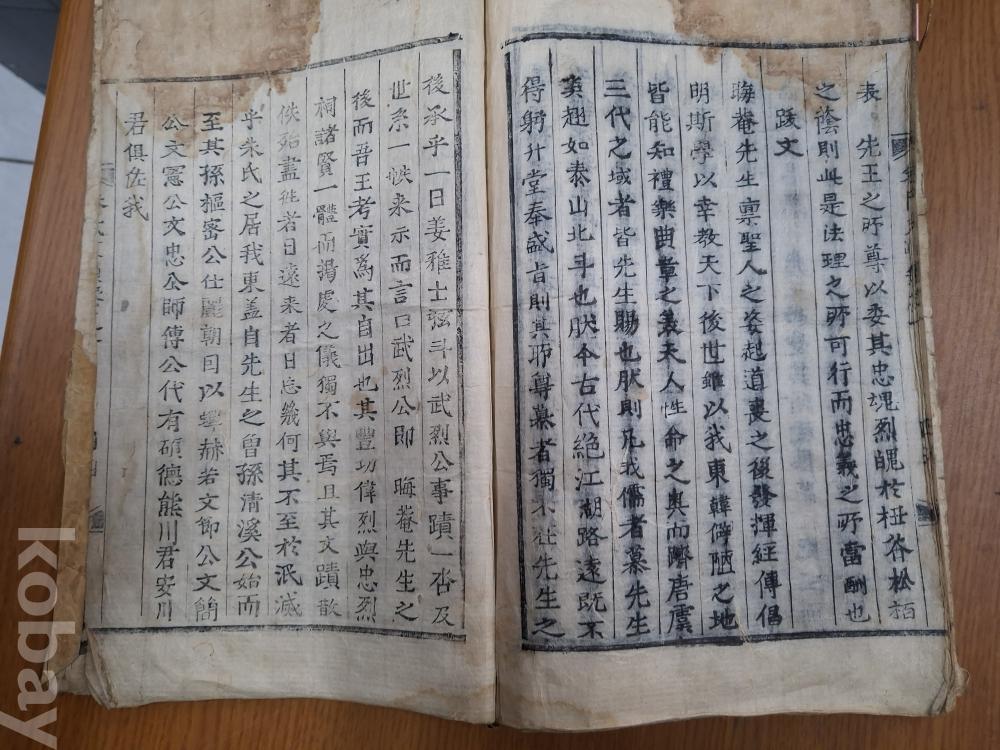 表 先王之所尊以委其忠魂烈魄於枉荅松栢
之蔭則此是法理之所可行而忠義之所當酬也
跋文
晦菴先生禀聖人之姿起道喪之後發揮經傳倡
明斯學以幸教天下後世雖以我東韓僻陋之地
皆能知禮樂典章之義天人性命之奧而躋唐虞
三代之域者皆先生賜也肰則凡我儒者慕先生
奚趐如泰山北斗也肰今古代絶江湖路遠既不
得躬升堂奉盛旨則其所尊慕者獨不在先生之
後承乎一日姜雅士弦斗以武烈公事蹟一呇及
世系一帙来示而言曰武烈公即 晦菴先生之
後而吾王考實爲其自出也其豐功偉烈與忠烈
祠諸賢一體而揭處之儀獨不與焉且其文蹟散
佚殆盡徃者日遠来者日忘幾何其不至於泯滅
乎朱氏之居我東盖自先生之曾孫清溪公始而
至其孫樞密公仕麗朝回以舉赫若文節公文簡
公文憲公文忠公師傅公代有碩德熊川君安川
君俱佐我
kobay